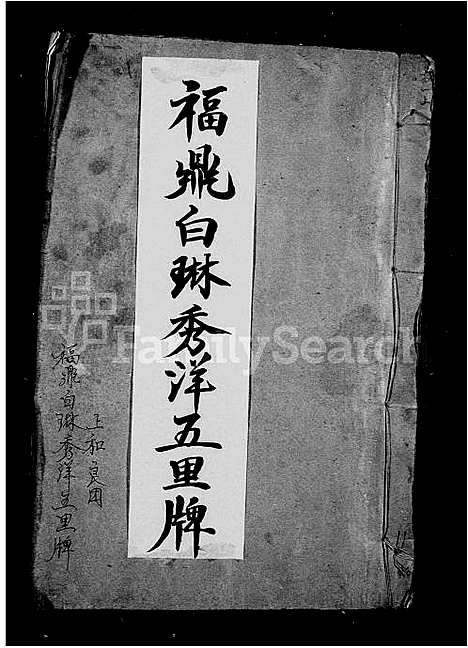 福鼎白琳秀洋五里牌
上和良固
福鼎白琳秀洋五里牌
FamilySearch